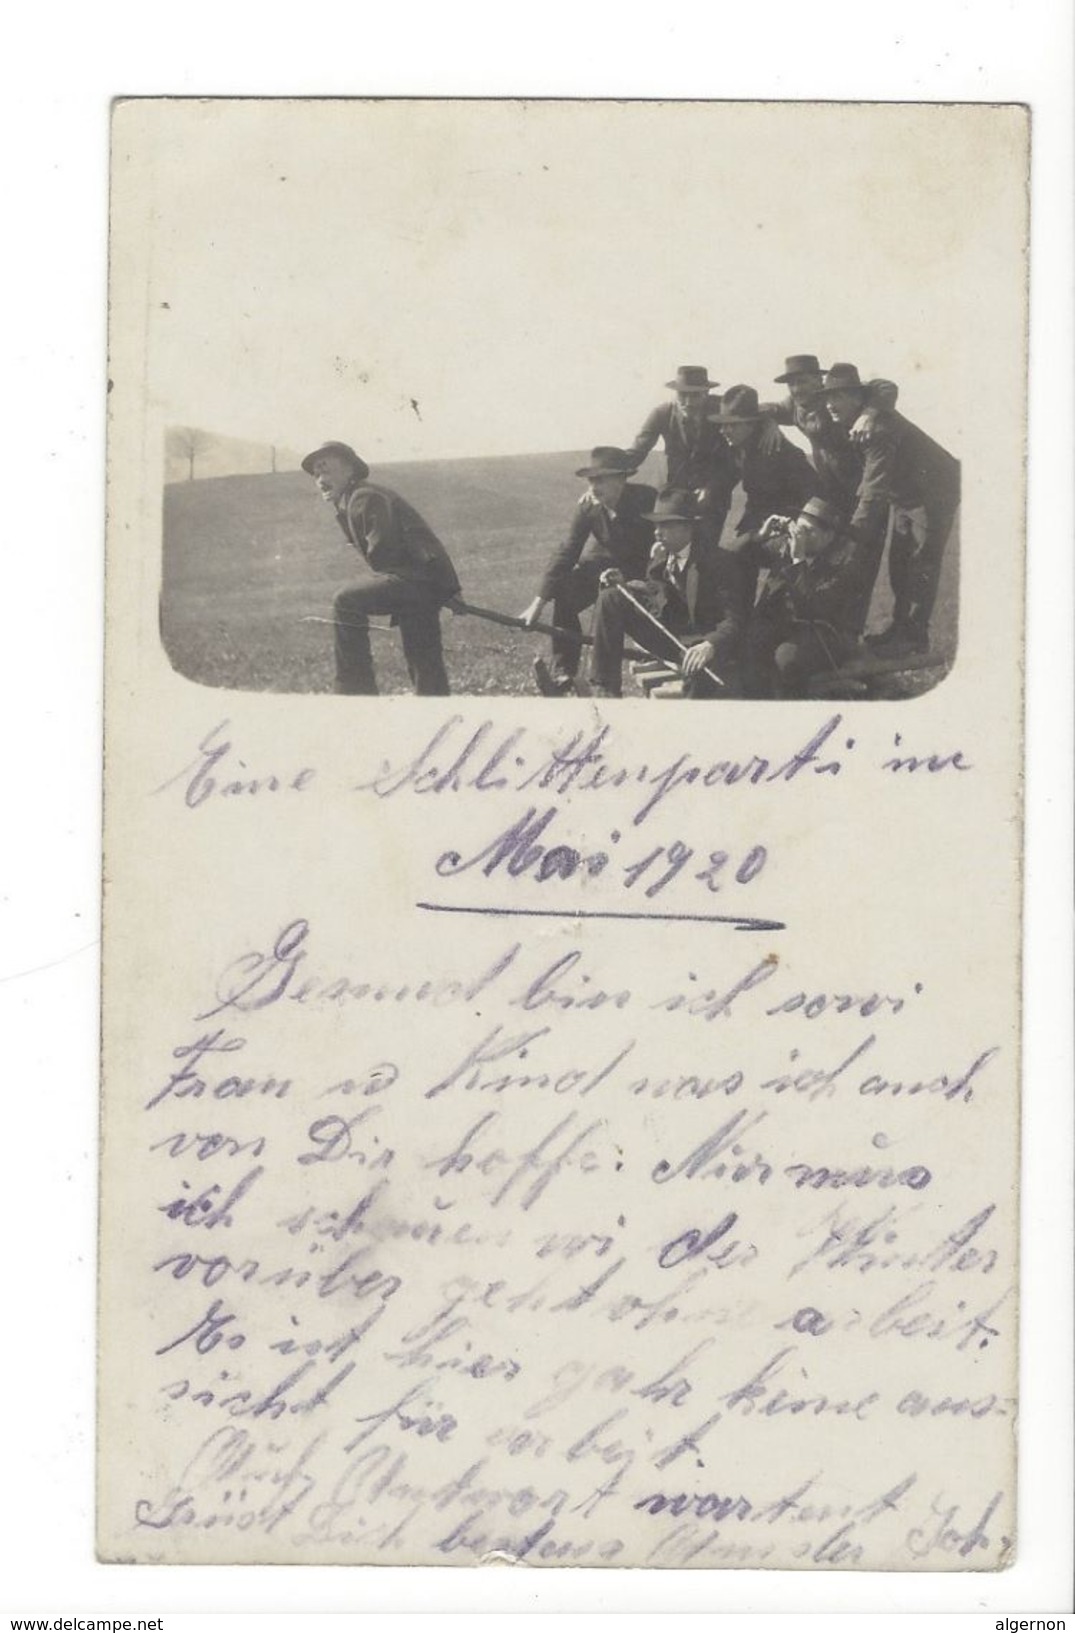 Eine Schlittenparti im
Mai 1920
Gesund bin ich sowi
Frau u Kind was ich auch
von Dir hoffe. Nur mus
ich schauen wi der Winter
vorüber geht ohne arbeit.
Es ist hier gahr keine aus-
sicht für arbeit.
Auf Antwort wartent
Grüst Dich bestens Amsler Joh.
delcampe.net
algernon